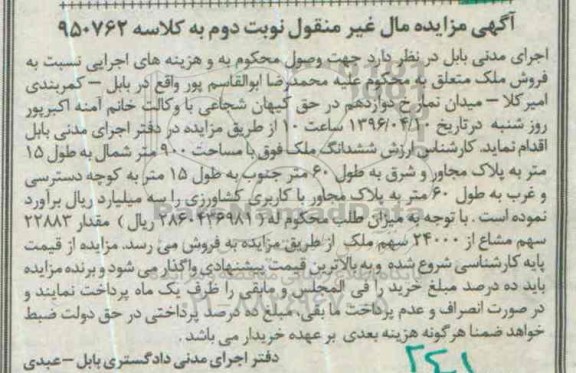 آگهی مزایده مال غیر منقول نوبت دوم به کلاسه ۹۵۰۷۶۲
اجرای مدنی بابل در نظر دارد جهت وصول محکوم به و هزینه های اجرایی نسبت به
فروش ملک متعلق به محکوم علیه محمدرضا ابوالقاسم پور واقع در بابل – کمربندی
امیرکلا – میدان نماز خ دوازدهم در حق کیهان شجاعی با وکالت خانم آمنه اکبرپور
روز شنبه درتاریخ ۱۳۹۶/۰۴/۱۰ ساعت ۱۰ از طریق مزایده در دفتر اجرای مدنی بابل
اقدام نماید. کارشناس ارزش ششدانگ ملک فوق با مساحت ۹۰۰ متر شمال به طول ۱۵
متر به پلاک مجاور و شرق به طول ۶۰ متر جنوب به طول ۱۵ متر به کوچه دسترسی
و غرب به طول ۶۰ متر به پلاک مجاور با کاربری کشاورزی را سه میلیارد ریال برآورد
نموده است . با توجه به میزان طلب محکوم له ( ۲۸۶۰۴۳۶۹۸۱ ریال ) مقدار ۲۲۸۸۳
سهم مشاع از ۲۴۰۰۰ سهم ملک از طریق مزایده به فروش می رسد. مزایده از قیمت
پایه کارشناسی شروع شده و به بالاترین قیمت پیشنهادی واگذار می شود و برنده مزایده
باید ده درصد مبلغ خرید را فی المجلس و مابقی را ظرف یک ماه پرداخت نمایند و
در صورت انصراف و عدم پرداخت ما بقی، مبلغ ده درصد پرداختی در حق دولت ضبط
خواهد شد ضمنا هرگونه هزینه بعدی بر عهده خریدار می باشد .
دفتر اجرای مدنی دادگستری بابل – عبدی